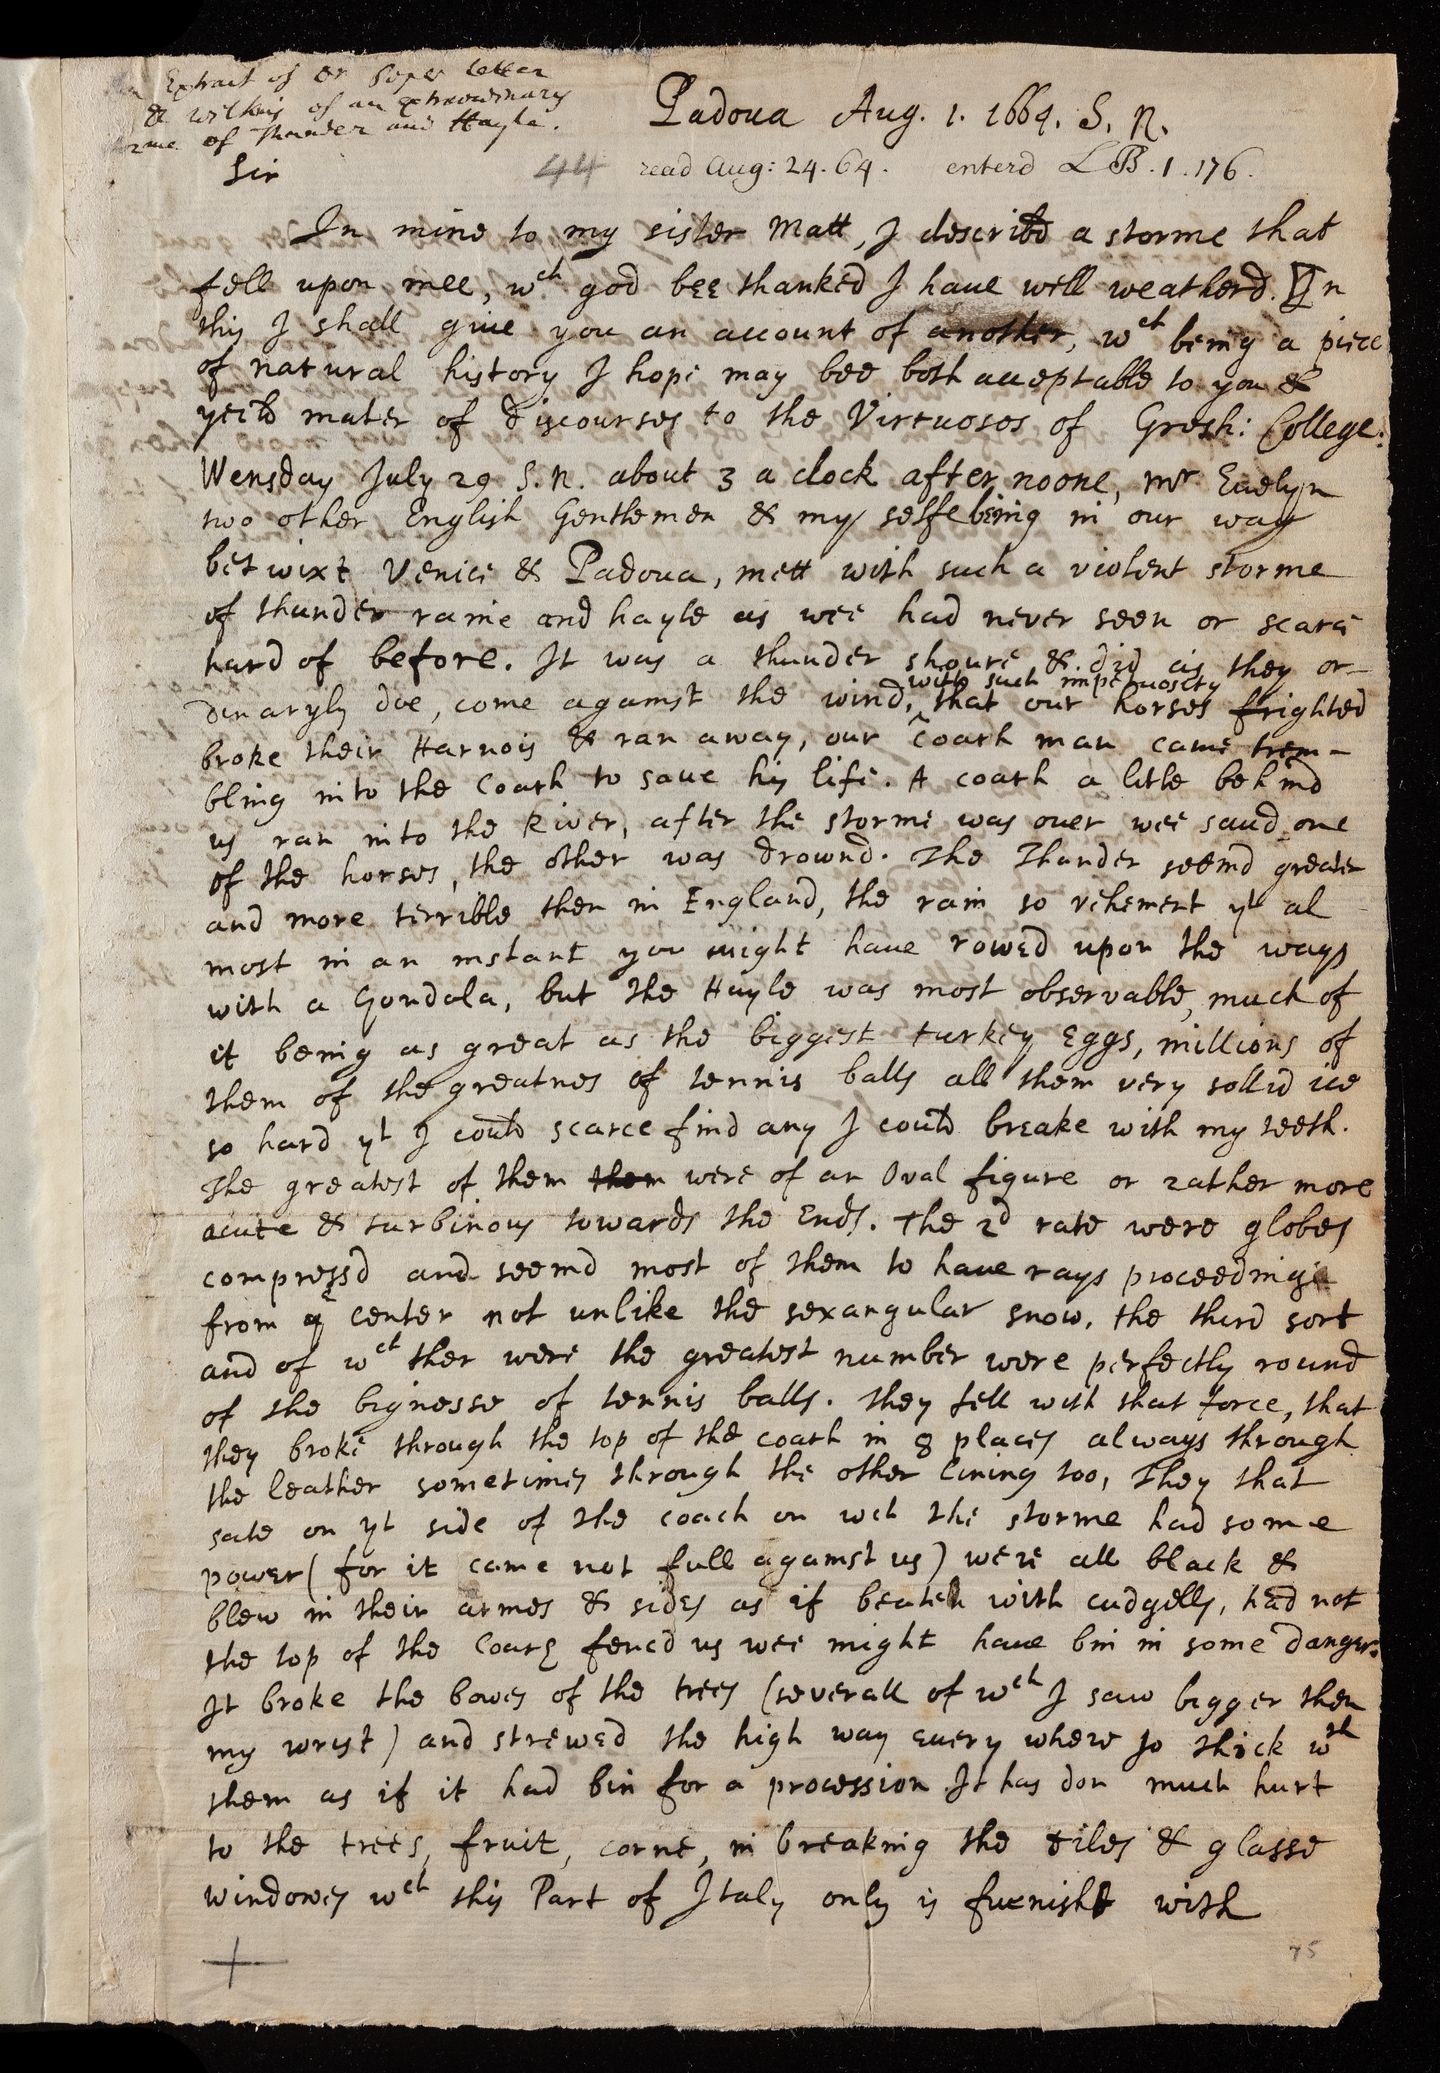 Extract of Dr Popes letter
Dr Wilkins of an extraordinary
storme of Thunder and Hayle.
Padoua Aug. 1. 1664. S. N.
Sir
44 read Aug: 24. 64. enterd LB. 1. 176.
In mine to my sister Matt, I describd a storme that
fell upon mee, wch god bee thanked I haue well weatherd. In
this I shall giue you an account of another, wch being a piece
of natural history I hope may bee both acceptable to you &
yeild mater of discourses to the Virtuosos of Gresh: College:
Wensday July 29 S. N. about 3 a clock after noone, mr Euelyn
two other English Gentlemen & my selfe being in our way
betwixt Venice & Padoua, mett with such a violent storme
of thunder raine and hayle as wee had never seen or scarce
hard of before. It was a thunder shoure & did as they or-
dinaryly doe, come against the wind, with such impetuosity that our horses frighted
broke their Harnois & ran away, our Coach man came trem-
bling into the Coach to saue his life. A coach a litle behind
us ran into the River, after the storme was ouer wee saud one
of the horses, the other was drownd. The Thunder seemd greater
and more terrible then in England, the rain so vehement yt al
most in an instant you might haue rowed upon the ways
with a Gondola, but the Hayle was most observable, much of
it being as great as the biggest turkey Eggs, millions of
them of the greatnes of tennis balls all them very sollid ice
so hard yt I could scarce find any I could breake with my teeth.
The greatest of them them were of an Oval figure or rather more
acute & turbinous towards the Ends. the 2d rate were globes
compressd and seemd most of them to haue rays proceeding
from ye center not unlike the sexangular snow, the third sort
and of wch ther were the greatest number were perfectly round
of the bignesse of tennis balls. they fell with that force, that
they broke through the top of the coach in 8 places always through
the leather sometimes through the other lining too, They that
sate on yt side of the coach on wch the storme had some
power (for it came not full against us) were all black &
blew in their armes & sides as if beaten with cudgells, had not
the top of the Coach fencd us wee might haue bin in some danger.
It broke the bowes of the trees (severall of wch I saw bigger then
my wrist) and strewed the high way euery where so thick wth
them as if it had bin for a procession It has don much hurt
to the trees, fruit, corne, in breaking the tiles & glasse
windowes wch this Part of Italy only is furnisht with
75